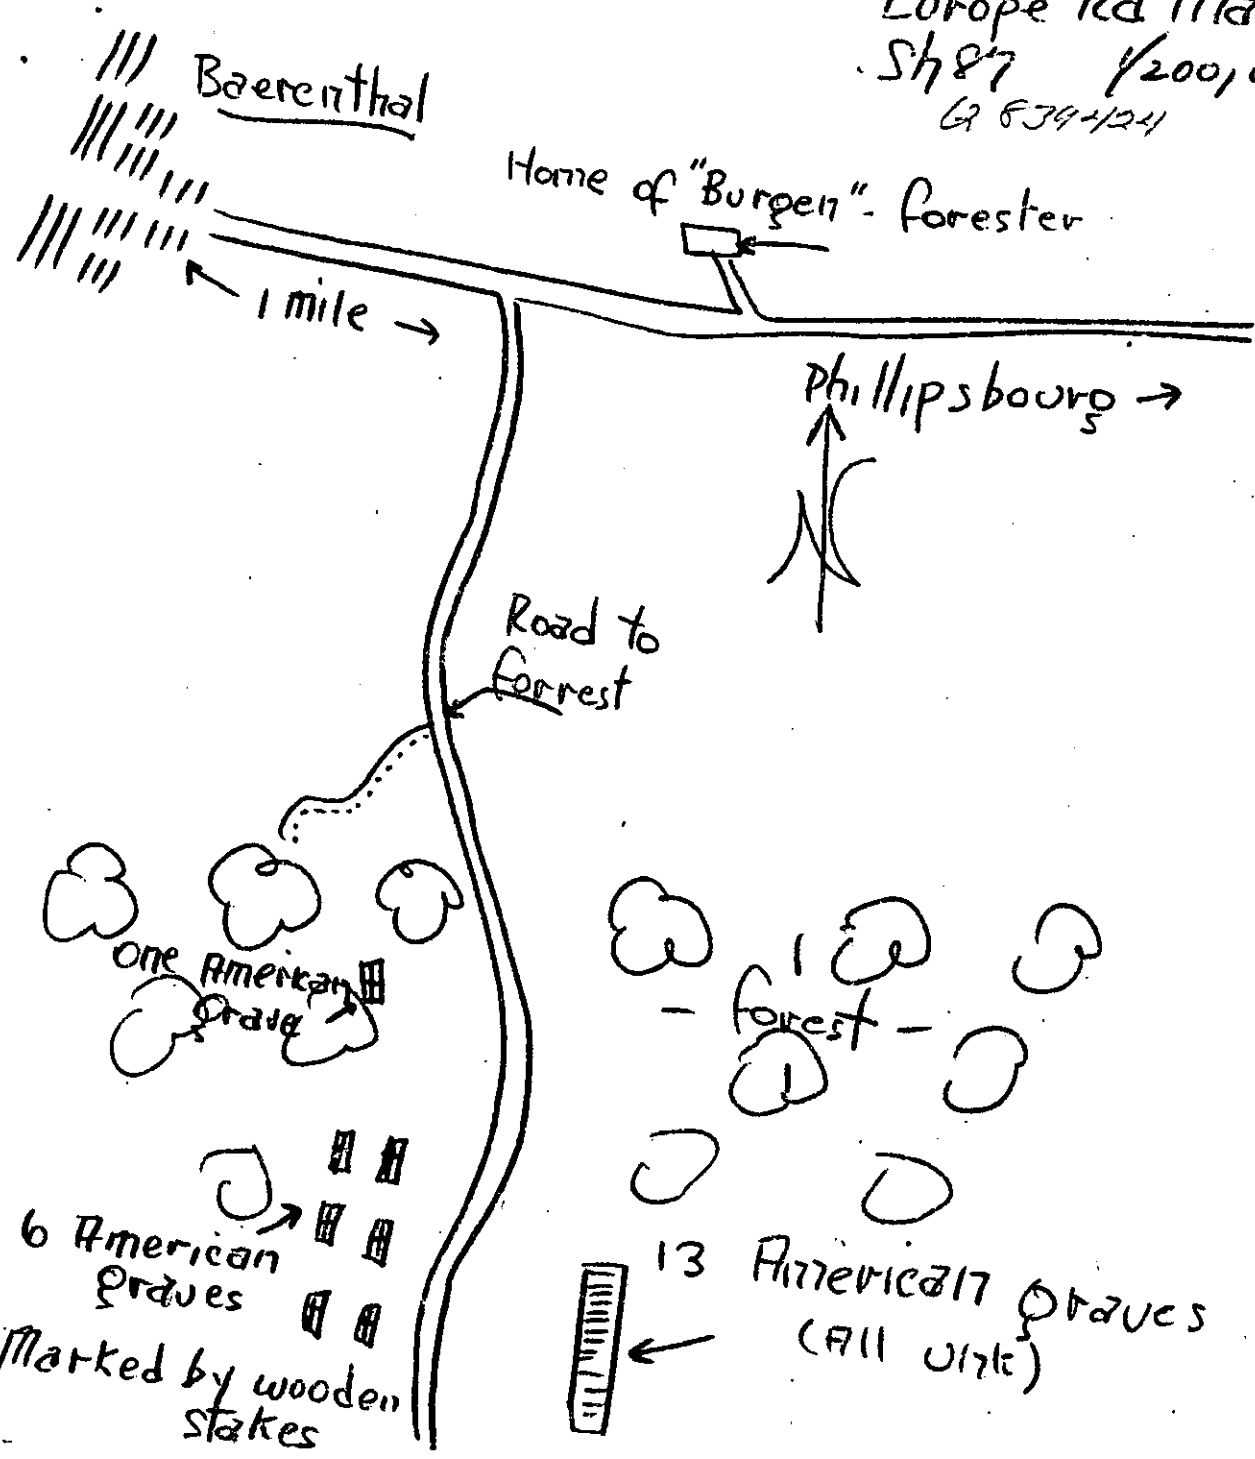 Europe Rd Ma
Sh 87 1/200,
Q 839424
Baerenthal
Home of "Burgen" - forester
1 mile →
Phillipsbourg →
N
Road to
forrest
One American
grave
- forest -
6 American
graves
Marked by wooden
stakes
13 American graves
(All Unk)